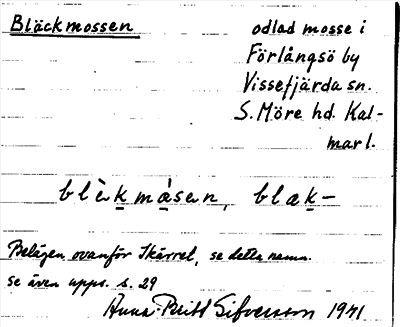 Bläckmossen
odlad mosse i
Förlångsö by
Vissefjärda sn.
S. Möre hd. Kal-
mar l.
blèkmåsen, blæk–
Belägen ovanför Skärret, se detta namn.
se även upps. s. 29
Anna-Britt Silversson 1941